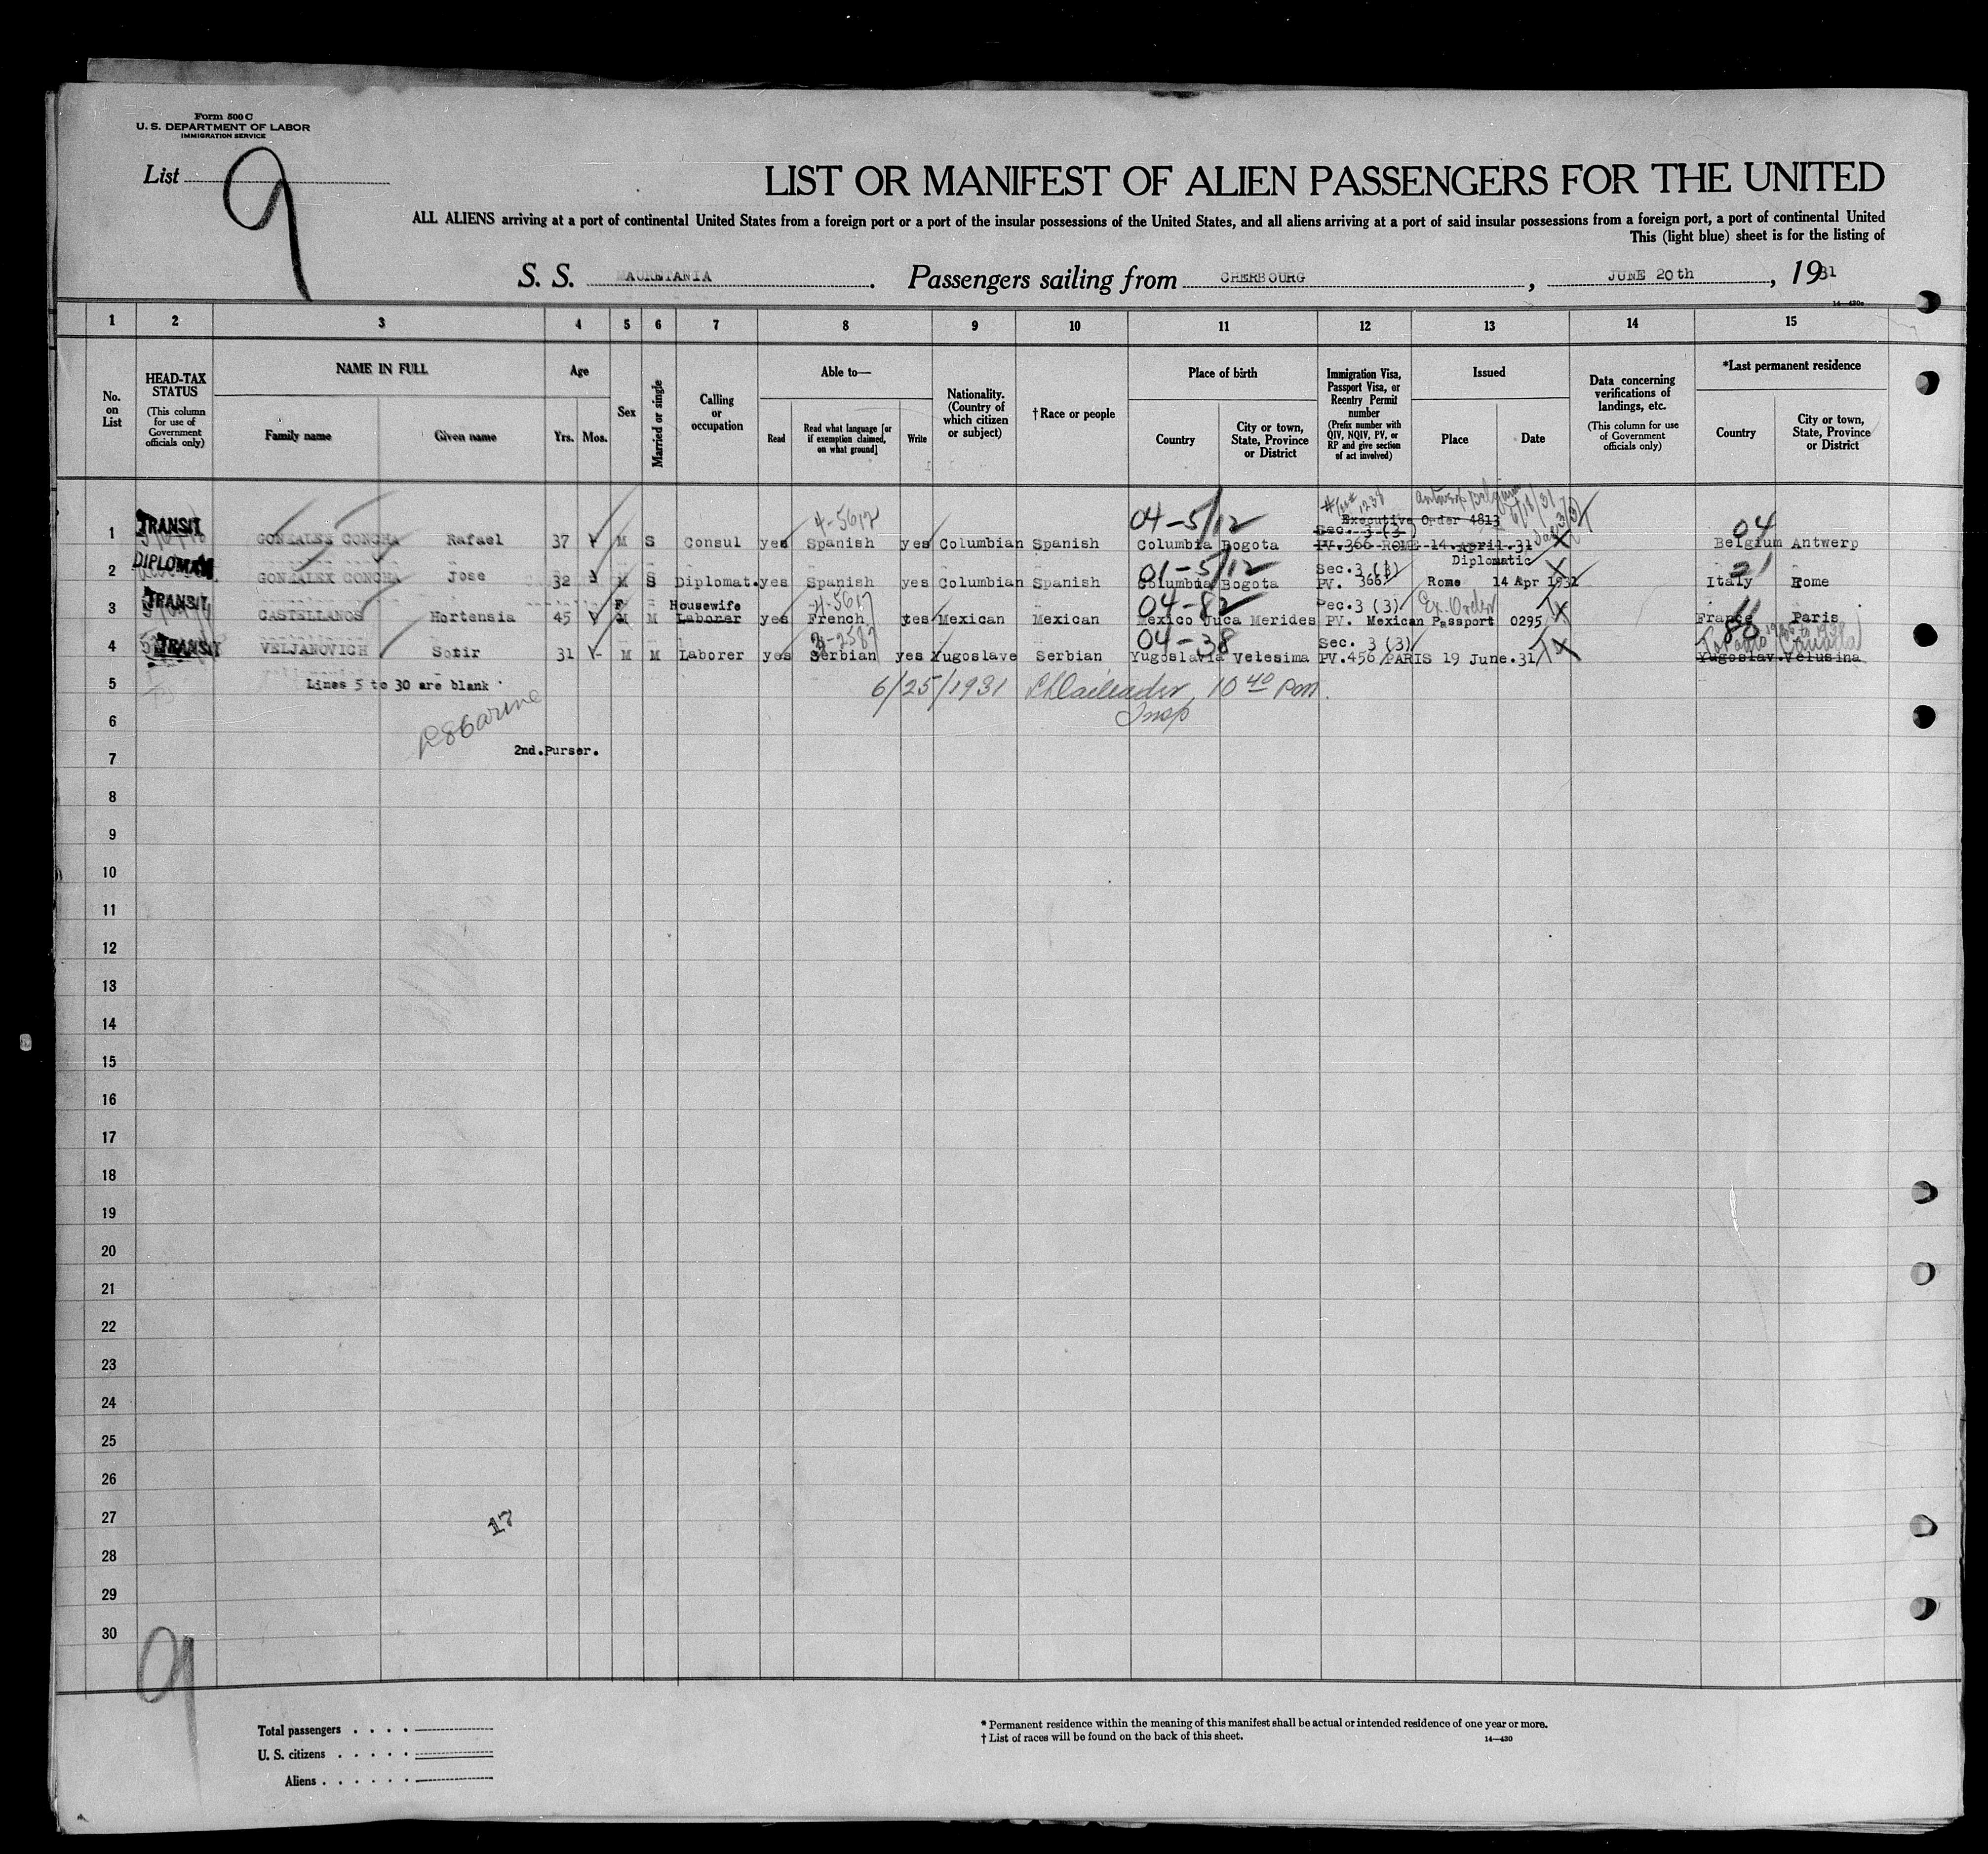 Form 500 C
U. S. DEPARTMENT OF LABOR
IMMIGRATION SERVICE
List 9
LIST OR MANIFEST OF ALIEN PASSENGERS FOR THE UNITED
ALL ALIENS arriving at a port of continental United States from a foreign port or a port of the insular possessions of the United States, and all aliens arriving at a port of said insular possessions from a foreign port, a port of continental United
This (light blue) sheet is for the listing of
S. S. MAURETANIA. Passengers sailing from CHERBOURG, JUNE 20th, 1931
14—420
1 2 3 4 5 6 7 8 9 10 11 12 13 14 15
No. on List
HEAD-TAX STATUS (This column for use of Government officials only)
NAME IN FULL
Family name
Given name
Age
Yrs. Mos.
Sex
Married or single
Calling or occupation
Able to—
Read
Read what language [or if exemption claimed, on what ground]
Write
Nationality. (Country of which citizen or subject)
†Race or people
Place of birth
Country
City or town, State, Province or District
Immigration Visa, Passport Visa, or Reentry Permit number (Prefix number with QIV, NQIV, PV, or RP and give section of act involved)
Issued
Place
Date
Data concerning verifications of landings, etc. (This column for use of Government officials only)
*Last permanent residence
Country
City or town, State, Province or District
4-5612 04-5/12 1238 Antwerp Belgium 6/18/31 04
Executive Order 4813
Sec. 3 (3)
1 TRANSIT GONZALES CONCHA Rafael 37 M S Consul yes Spanish yes Columbian Spanish Columbia Bogota PV.366 ROME 14 April.31 Belgium Antwerp
01-5/12 Sec.3 (3) Diplomatic 21
2 DIPLOMAT GONZALEX CONCHA Jose 32 M S Diplomat. yes Spanish yes Columbian Spanish Columbia Bogota PV. 366 Rome 14 Apr 1931 Italy Rome
F Housewife 4-5617 04-82 Sec.3 (3) Ex. Order
3 TRANSIT CASTELLANOS Hortensia 45 M M Laborer yes French yes Mexican Mexican Mexico Juca Merides PV. Mexican Passport 0295 France Paris
04-38 Sec. 3 (3) 80 Toronto Canada
4 TRANSIT VELJANOVICH Sotir 31 M M Laborer yes Serbian yes Yugoslave Serbian Yugoslavia Velesima PV.456 PARIS 19 June.31 Yugoslav. Velusina
5 Lines 5 to 30 are blank 6/25/1931 10 40 Pm.
Insp
6
2nd.Purser.
7
8
9
10
11
12
13
14
15
16
17
18
19
20
21
22
23
24
25
26
27
17
28
29
30
9
Total passengers . . . .
U. S. citizens . . . . .
Aliens . . . . . .
* Permanent residence within the meaning of this manifest shall be actual or intended residence of one year or more.
† List of races will be found on the back of this sheet.
14—420